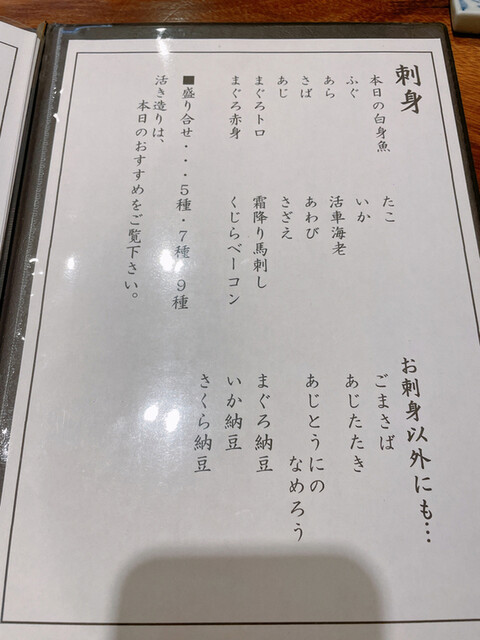 刺身
本日の白身魚
ふぐ
あら
さば
あじ
まぐろトロ
まぐろ赤身
たこ
いか
活車海老
あわび
さざえ
霜降り馬刺し
くじらベーコン
■盛り合せ・・・5種・7種・9種
活き造りは、
本日のおすすめをご覧下さい。
お刺身以外にも…
ごまさば
あじたたき
あじとうにの
なめろう
まぐろ納豆
いか納豆
さくら納豆